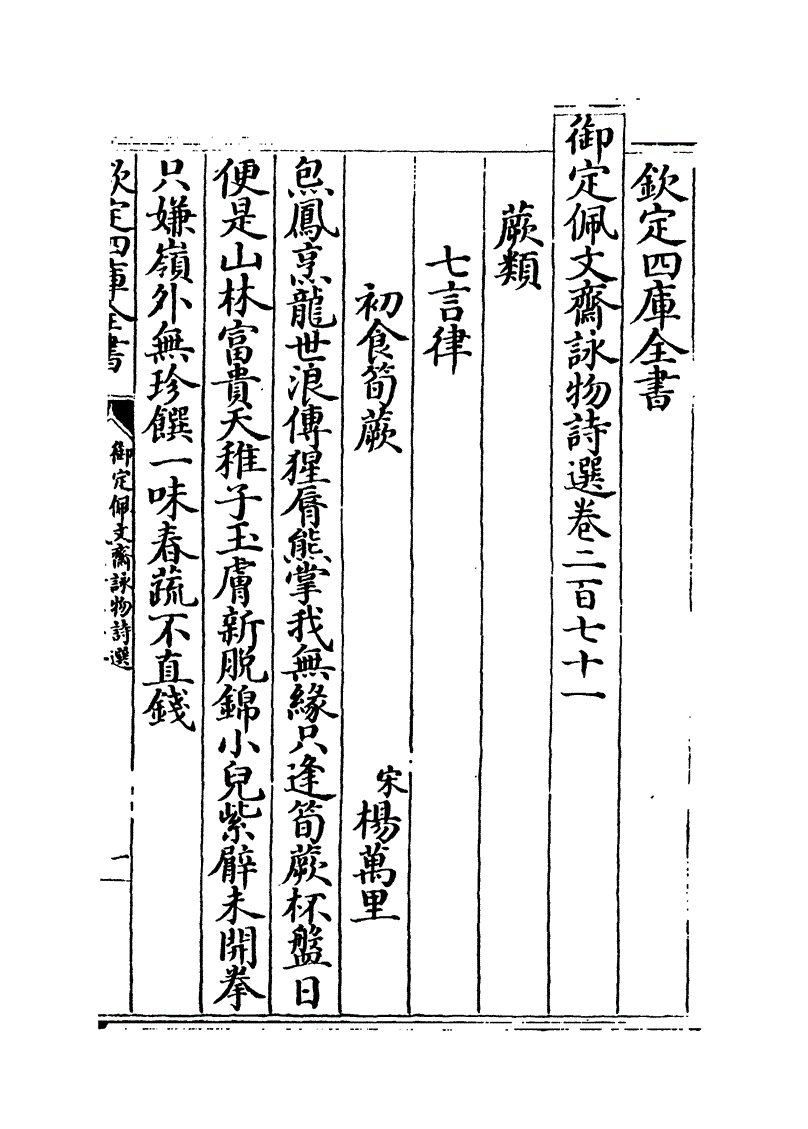 欽定四庫全書
御定佩文齋詠物詩選卷二百七十一
蕨類
七言律
初食筍蕨
宋楊萬里
炰鳳烹龍世浪傳猩脣熊掌我無緣只逢筍蕨杯盤日
便是山林富貴天稚子玉膚新脫錦小兒紫臂未開拳
只嫌嶺外無珍饌一味春蔬不直錢
欽定四庫全書
御定佩文齋詠物詩選